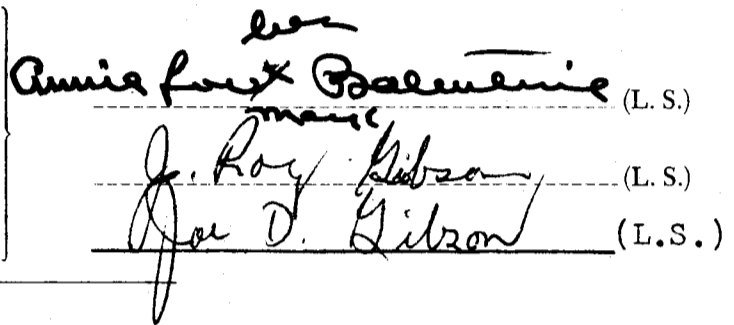 her
Annie Lou X Balentine (L. S.)
mark
J. Roy Gibson (L. S.)
Joe D. Gibson (L.S.)